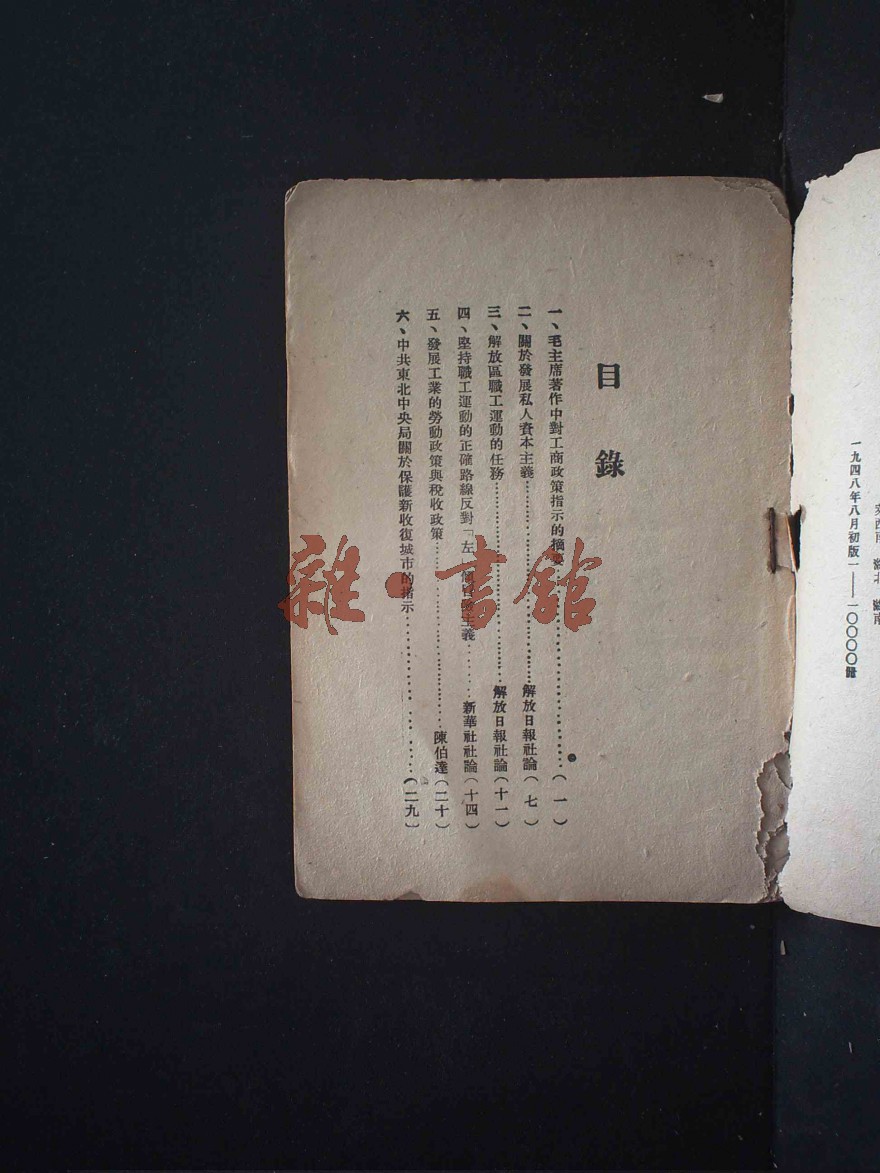 萊西南 海北 海南
一九四八年八月初版一——一〇〇〇〇冊
目錄
一、毛主席著作中對工商政策指示的摘要……(一)
二、關於發展私人資本主義……解放日報社論(七)
三、解放區職工運動的任務……解放日報社論(十一)
四、堅持職工運動的正確路線反對「左」主義……新華社社論(十四)
五、發展工業的勞動政策與稅收政策……陳伯達(二十)
六、中共東北中央局關於保護新收復城市的指示……(二九)
雜·書館